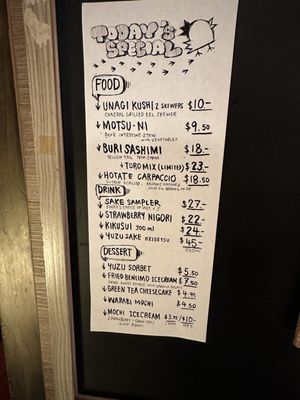 TODAY'S
SPECIAL
FOOD
UNAGI KUSHI 2 SKEWERS $10-
CHACOAL GRILLED EEL SKEWER
MOTSU-NI $9.50
PORK INTESTINE STEW
WITH VEGETABLES
BURI SASHIMI $18.-
YELLOW TAIL FROM JAPAN
TORO MIX (LIMITED) $23.-
HOTATE CARPACCIO $18.50
DRINK
SAKE SAMPLER $27.-
STRAWBERRY NIGORI $22-
KIKUSUI 300 ml $24-
YUZU SAKE KEIGETSU $45-
DESSERT
YUZU SORBET $5.50
FRIED BENIIMO ICECREAM $7.50
GREEN TEA CHEESECAKE $4.95
WARABI MOCHI $4.50
MOCHI ICECREAM $3.75/$10-